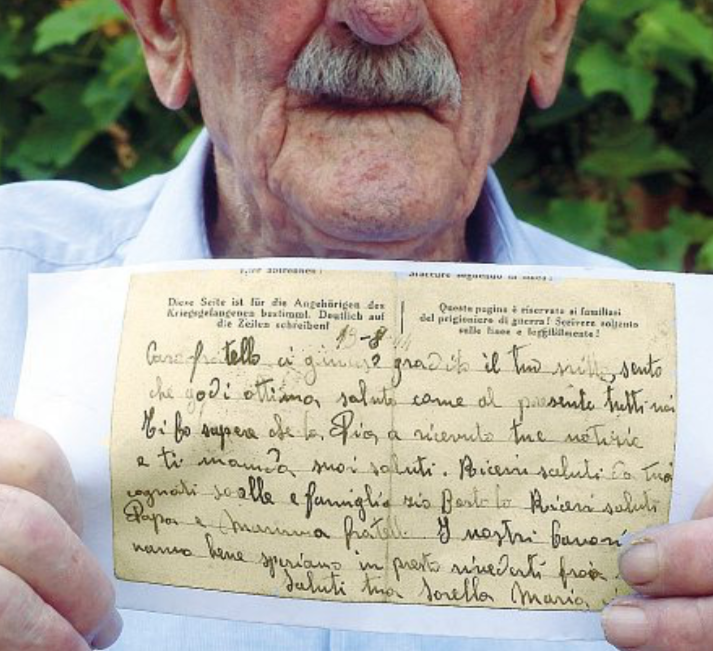 Hier abtrennen!
Staccare seguendo la linea!
Diese Seite ist für die Angehörigen des
Kriegsgefangenen bestimmt. Deutlich auf
die Zeilen schreiben!
Questa pagina è riservata ai familiari
del prigioniero di guerra! Scrivere soltanto
sulle linee e leggibilmente!
13-8
Caro fratello ci giunse gradito il tuo scritto, sento
che godi ottima salute come al presente tutti noi
Ti fo sapere che la Pia a ricevuto tue notizie
e ti manda suoi saluti. Ricevi saluti da tuoi
cognati e famiglia zio Ricevi saluti
Papà e Mamma fratelli I nostri
vanno bene speriamo in presto rivederti
Saluti tua Sorella Maria